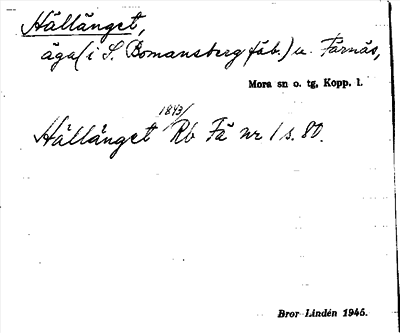 Hällänget,
äga (i S. Bomansberg fäb.) u. Färnäs,
Mora sn o. tg, Kopp. l.
1843/
Hällänget Rb Fä nr 1 s. 80.
Bror Lindén 1945.